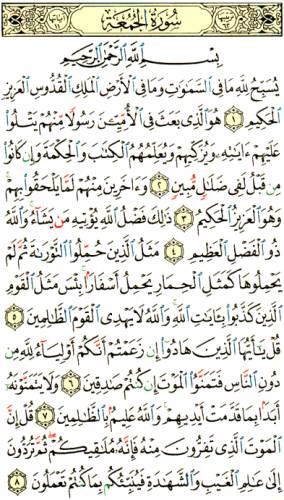 سُورَةُ الجُمُعَةِ
بِسْمِ اللَّهِ الرَّحْمَٰنِ الرَّحِيمِ
يُسَبِّحُ لِلَّهِ مَا فِي السَّمَٰوَٰتِ وَمَا فِي الْأَرْضِ الْمَلِكِ الْقُدُّوسِ الْعَزِيزِ
الْحَكِيمِ ١ هُوَ الَّذِي بَعَثَ فِي الْأُمِّيِّنَ رَسُولًا مِّنْهُمْ يَتْلُوا
عَلَيْهِمْ ءَايَٰتِهِ وَيُزَكِّيهِمْ وَيُعَلِّمُهُمُ الْكِتَٰبَ وَالْحِكْمَةَ وَإِن كَانُوا
مِن قَبْلُ لَفِي ضَلَٰلٍ مُّبِينٍ ٢ وَءَاخَرِينَ مِنْهُمْ لَمَّا يَلْحَقُوا بِهِمْ
وَهُوَ الْعَزِيزُ الْحَكِيمُ ٣ ذَٰلِكَ فَضْلُ اللَّهِ يُؤْتِيهِ مَن يَشَاءُ وَاللَّهُ
ذُو الْفَضْلِ الْعَظِيمِ ٤ مَثَلُ الَّذِينَ حُمِّلُوا التَّوْرَىٰةَ ثُمَّ لَمْ
يَحْمِلُوهَا كَمَثَلِ الْحِمَارِ يَحْمِلُ أَسْفَارًا بِئْسَ مَثَلُ الْقَوْمِ
الَّذِينَ كَذَّبُوا بِـَٔايَٰتِ اللَّهِ وَاللَّهُ لَا يَهْدِي الْقَوْمَ الظَّٰلِمِينَ ٥
قُلْ يَٰأَيُّهَا الَّذِينَ هَادُوا إِن زَعَمْتُمْ أَنَّكُمْ أَوْلِيَاءُ لِلَّهِ مِن
دُونِ النَّاسِ فَتَمَنَّوُا الْمَوْتَ إِن كُنتُمْ صَٰدِقِينَ ٦ وَلَا يَتَمَنَّوْنَهُ
أَبَدًا بِمَا قَدَّمَتْ أَيْدِيهِمْ وَاللَّهُ عَلِيمٌ بِالظَّٰلِمِينَ ٧ قُلْ إِنَّ
الْمَوْتَ الَّذِي تَفِرُّونَ مِنْهُ فَإِنَّهُ مُلَٰقِيكُمْ ثُمَّ تُرَدُّونَ
إِلَىٰ عَٰلِمِ الْغَيْبِ وَالشَّهَٰدَةِ فَيُنَبِّئُكُم بِمَا كُنتُمْ تَعْمَلُونَ ٨